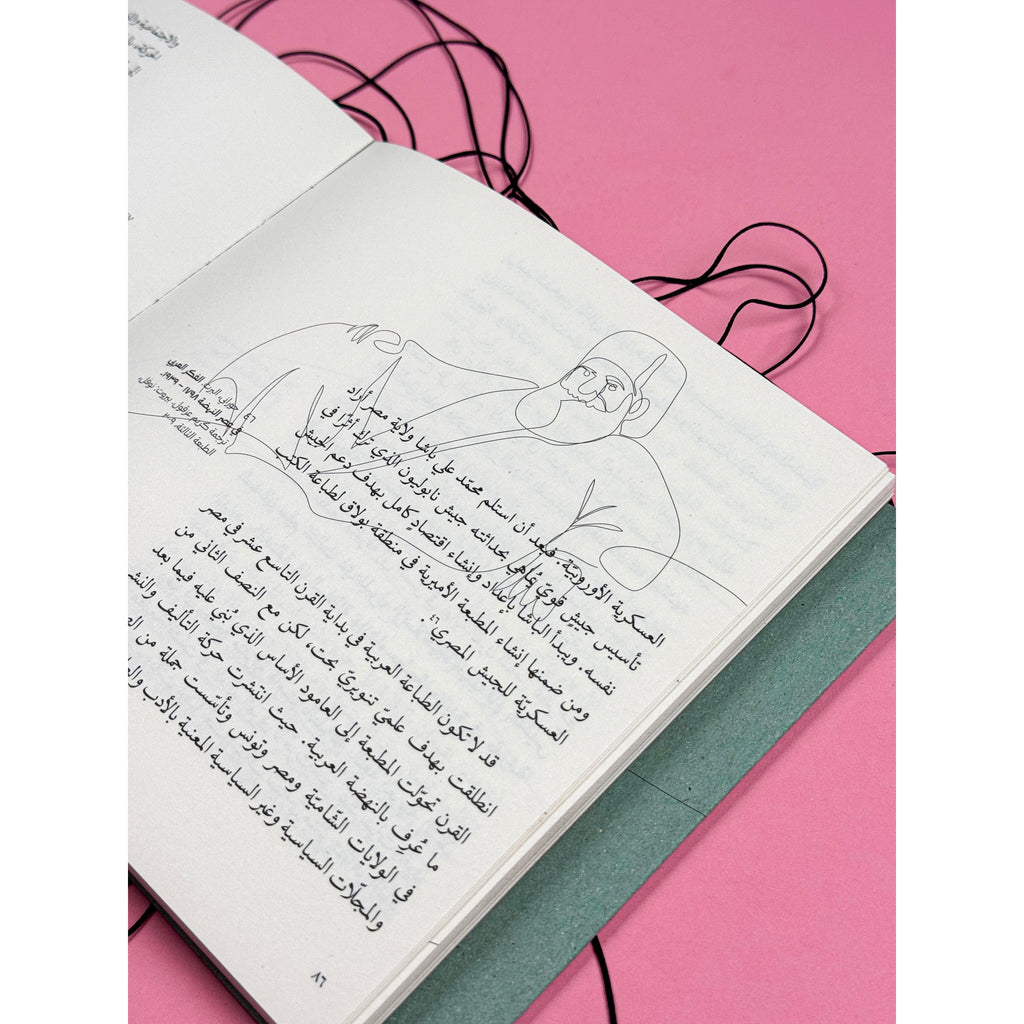 والاجتماعية
العسكرية الأوروبيّة. فبعد أن استلم محمّد علي باشا ولاية مصر أراد
تأسيس جيشٍ قويّ يُماهي بحداثته جيش نابوليون الذي ترك أثرًا في
نفسه. ويبدأ الباشا بإعداد وإنشاء اقتصادٍ كامل بهدف دعم الجيش
ومن ضمنها إنشاء المطبعة الأميرية في منطقة بولاق لطباعة الكتب
العسكريّة للجيش المصري.٤٦
قد لا تكون الطباعة العربية في بداية القرن التاسع عشر في مصر
انطلقت بهدف علميّ تنويريّ بحت، لكن مع النصف الثاني من
القرن تحوّلت المطبعة إلى العامود الأساس الذي بُني عليه فيما بعد
ما عُرِف بالنهضة العربية. حيث انتشرت حركة التأليف والنشر
في الولايات الشاميّة ومصر وتونس وتأسّست جملة من
والمجلّات السياسية وغير السياسية المعنية بالأدب
٤٦
حوراني، ألبرت. الفكر العربي
في عصر النهضة ١٧٩٨ – ١٩٣٩.
ترجمة كريم عزقول. بيروت: نوفل،
الطبعة الثالثة، ٢٠٠٩
٨٦